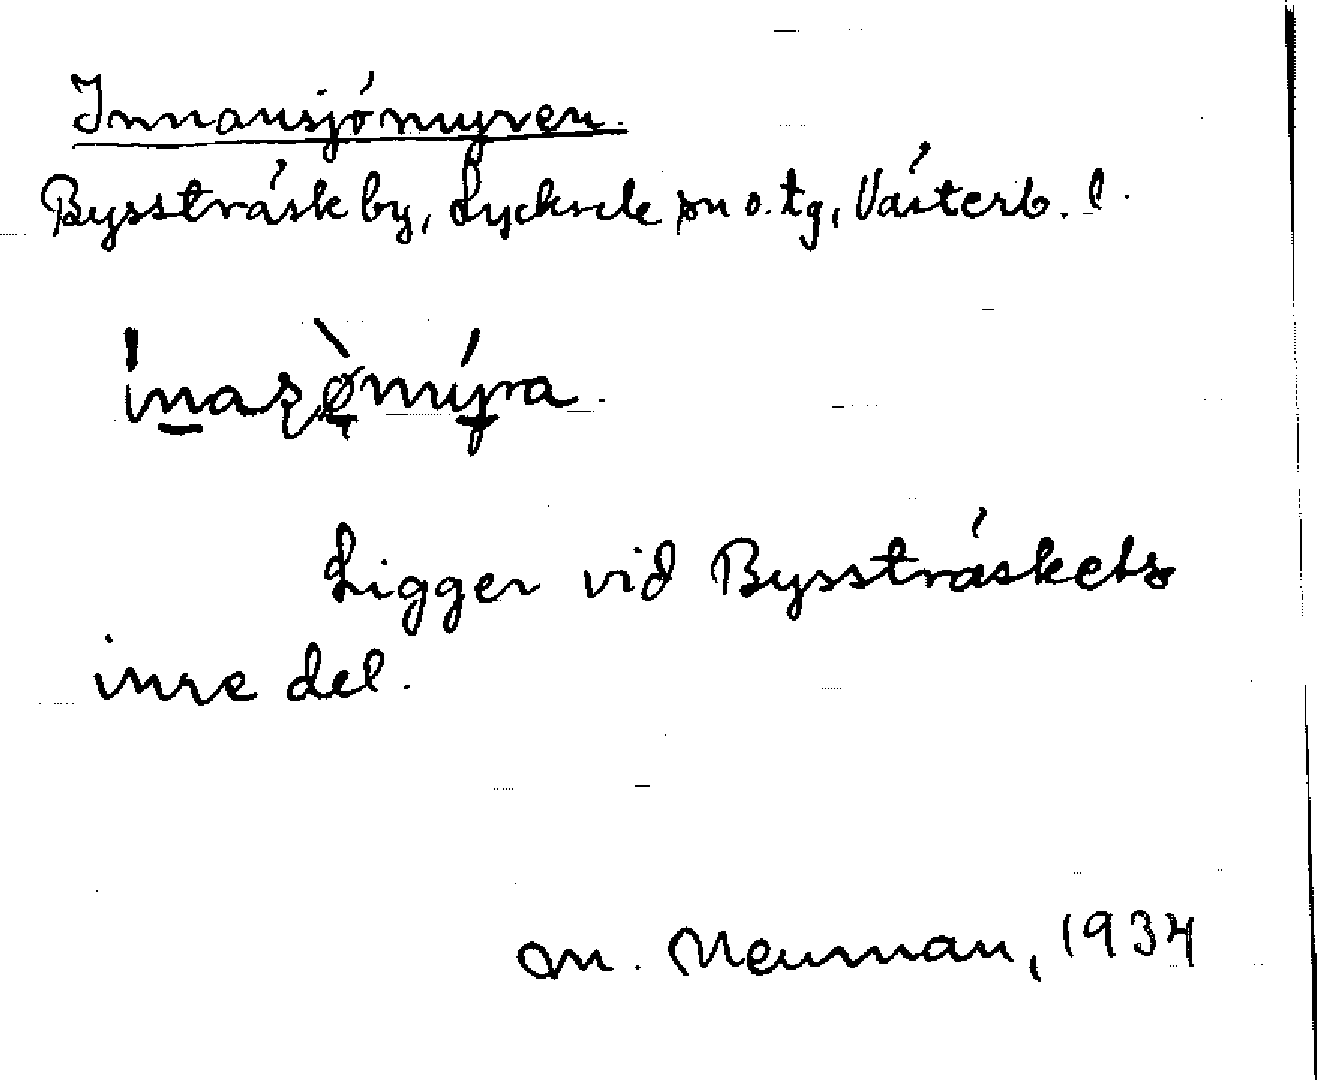 Innansjömyren.
Byssträsk by, Lycksele sn o. tg, Västerb. l.
Ligger vid Bysträskets
inre del.
M. Neuman, 1934